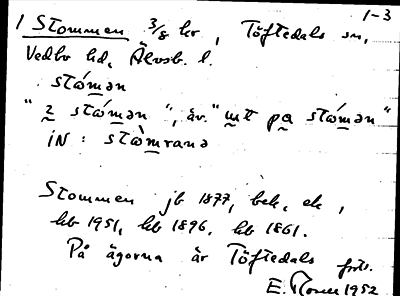 1-3
1 Stommen 3/8 hr, Töftedals sn,
Vedbo hd, Älvsb. l.
stómən
"2 stómən", äv. "ut på stómən"
iN: stòmrana
Stommen jb 1877, bek, ek,
kb 1951, kb 1896, kb 1861.
På ägorna är Töftedals
E. 1952